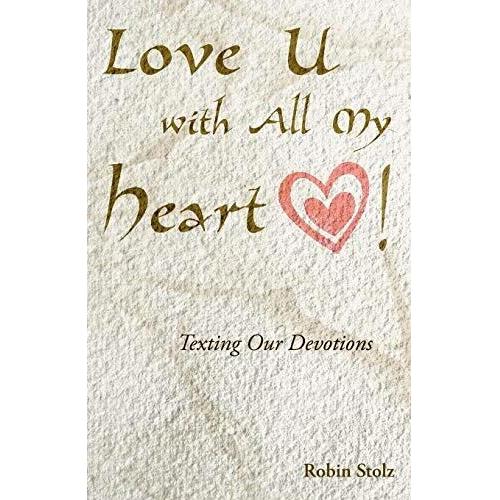 Love U
with All My
heart !
Texting Our Devotions
Robin Stolz